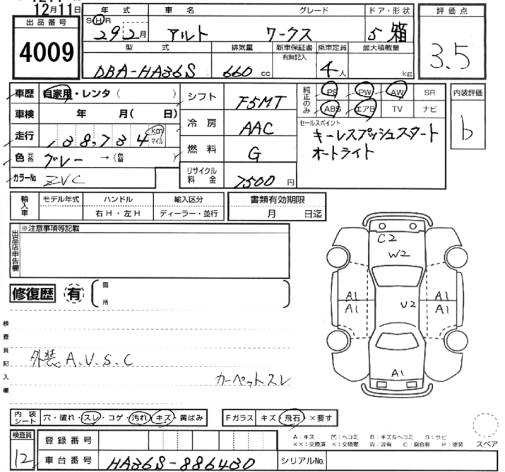 12月11日
出品番号 4009
年式 車名 グレード ドア・形状
S H R 29 2月 アルト ワークス 5 箱
型式 排気量 新車保証書 乗車定員 最大積載量
有無記入
DBA-HA36S 660 cc 4人 kg
評価点
3.5
車歴 自家用・レンタ( )
車検 年 月( 日)
走行 138,734 km マイル
色 グレー → (色 )
カラーNo ZVC
シフト F5MT
冷房 AAC
燃料 G
リサイクル料金 7500円
純正のみ PS PW AW SR
ABS エアB TV ナビ
セールスポイント
キーレスプッシュスタート
オートライト
内装評価
b
輸入車 モデル年式 ハンドル 輸入区分
右H・左H ディーラー・並行
書類有効期限
月 日迄
出品店申告欄 ※注意事項等記載
修復歴 有 箇所
検査員記入欄
外装 A.U.S.C
カーペットスレ
C2
W2
A1
A1
U2
A1
A1
A1
内装シート 穴・破れ・スレ・コゲ・汚れ・キズ・黄ばみ
Fガラス キズ・飛石・×要す
検査員 12
登録番号
車台番号 HA36S-886430
シリアルNo.
スペア